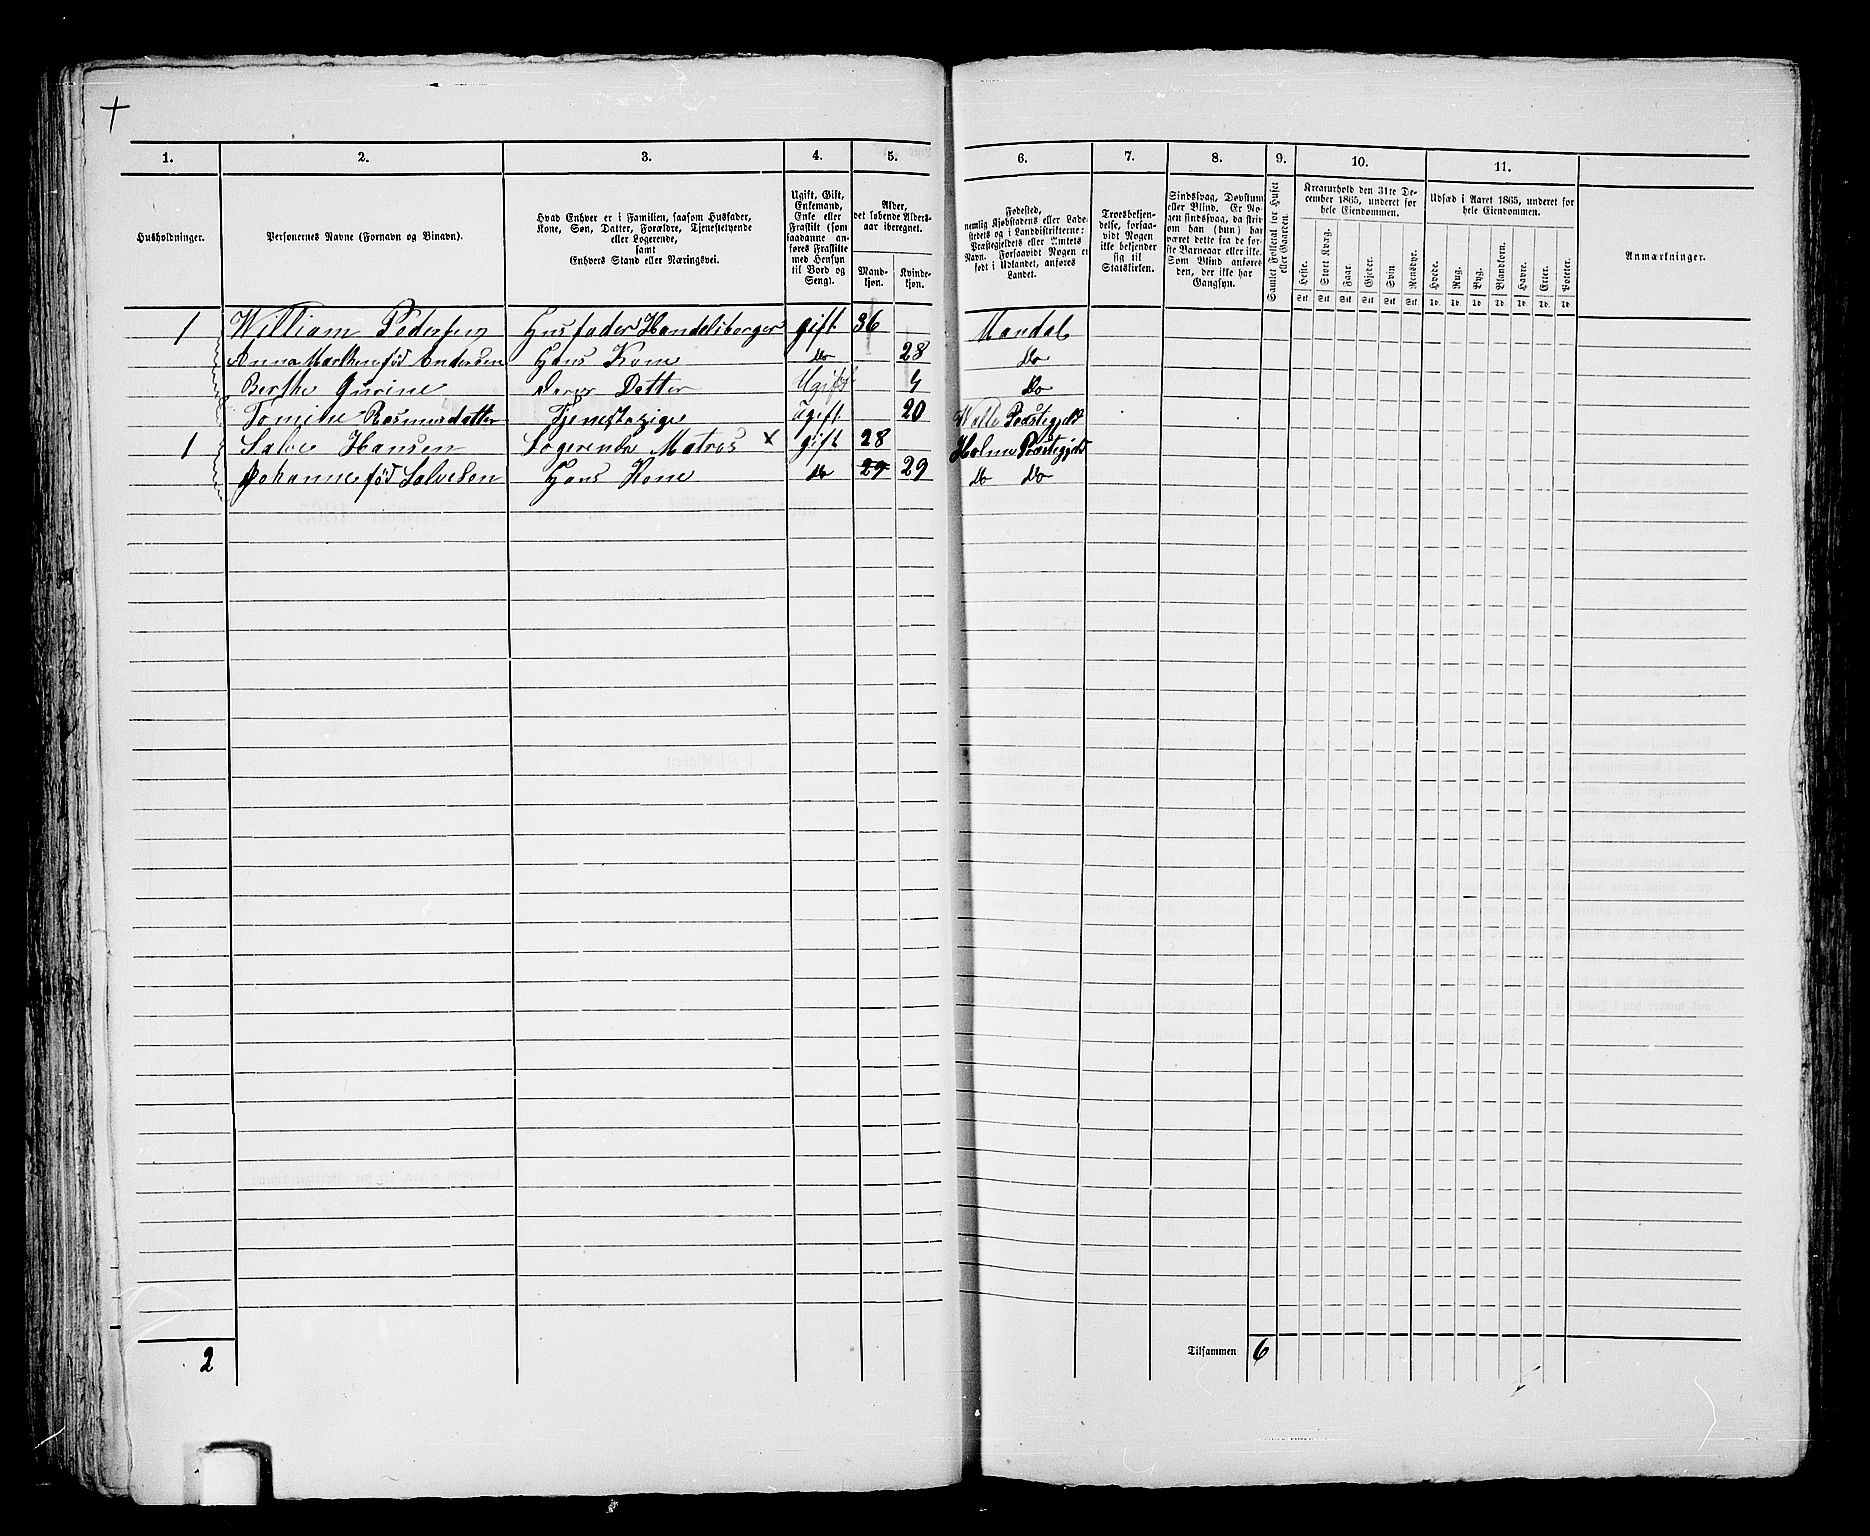 1. 2. 3. 4. 5. 6. 7. 8. 9. 10. 11.
Husholdninger.
Personernes Navne (Fornavn og Binavn).
Hvad Enhver er i Familien, saasom Husfader,
Kone, Søn, Datter, Forældre, Tjenestetyende
eller Logerende,
samt
Enhvers Stand eller Næringsvei.
Ugift, Gift,
Enkemand,
Enke eller
Fraskilt (som
saadanne an-
føres Fraskilte
med Hensyn
til Bord og
Seng).
Alder,
det løbende Alders-
aar iberegnet.
Mand-
kjøn.
Kvinde-
kjøn.
Fødested,
nemlig Kjøbstadens eller Lade-
stedets og i Landdistrikterne:
Præstegjeldets eller Amtets
Navn. Forsaavidt Nogen er
født i Udlandet, anføres
Landet.
Troesbekjen-
delse, forsaa-
vidt Nogen
ikke bekjender
sig til
Statskirken.
Sindssvag, Døvstum
eller Blind. Er No-
gen sindssvag, da skriv
om han (hun) har
været dette fra de før-
ste Barneaar eller ikke.
Som Blind anføres
den, der ikke har
Gangsyn.
Samlet Folketal for Huset
eller Gaarden.
Kreaturhold den 31te De-
cember 1865, underet for
hele Eiendommen.
Heste. Stort Kvæg. Faar. Gjeder. Svin. Rensdyr.
Stk. Stk. Stk. Stk. Stk. Stk.
Udsæd i Aaret 1865, underet for
hele Eiendommen.
Hvede. Rug. Byg. Blandkorn. Havre. Erter. Poteter.
Td. Td. Td. Td. Td. Td. Td.
Anmærkninger.
1 William Pedersen Husfader Handelsborger gift 36 Mandal
Anna født Andersen Hans Kone do 28 do
Berthe Gurine Deres Datter Ugift 4 do
Tomine Rasmusdatter Ugift 20
1 Salve Hansen Logerende Matros x gift 28 Holme Præstegjeld
Johanne fød Salvesen Hans Kone do 29 29 do do
2 Tilsammen 6